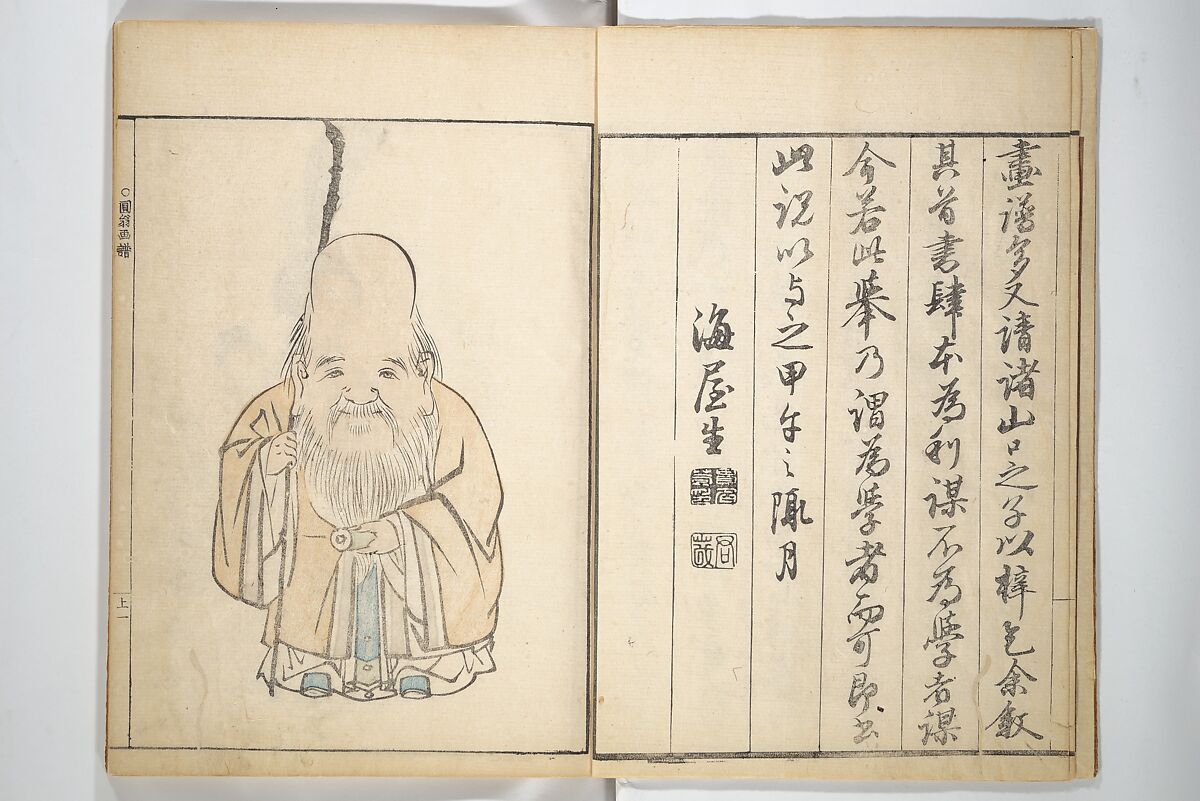 畫譜多又請諸山口之子以梓乞余敘
其首書肆本為利謀不為學者謀
今若此舉乃謂為學者而可即書
此説以与之甲午之陬月
海屋生
○圓翁画譜
上一